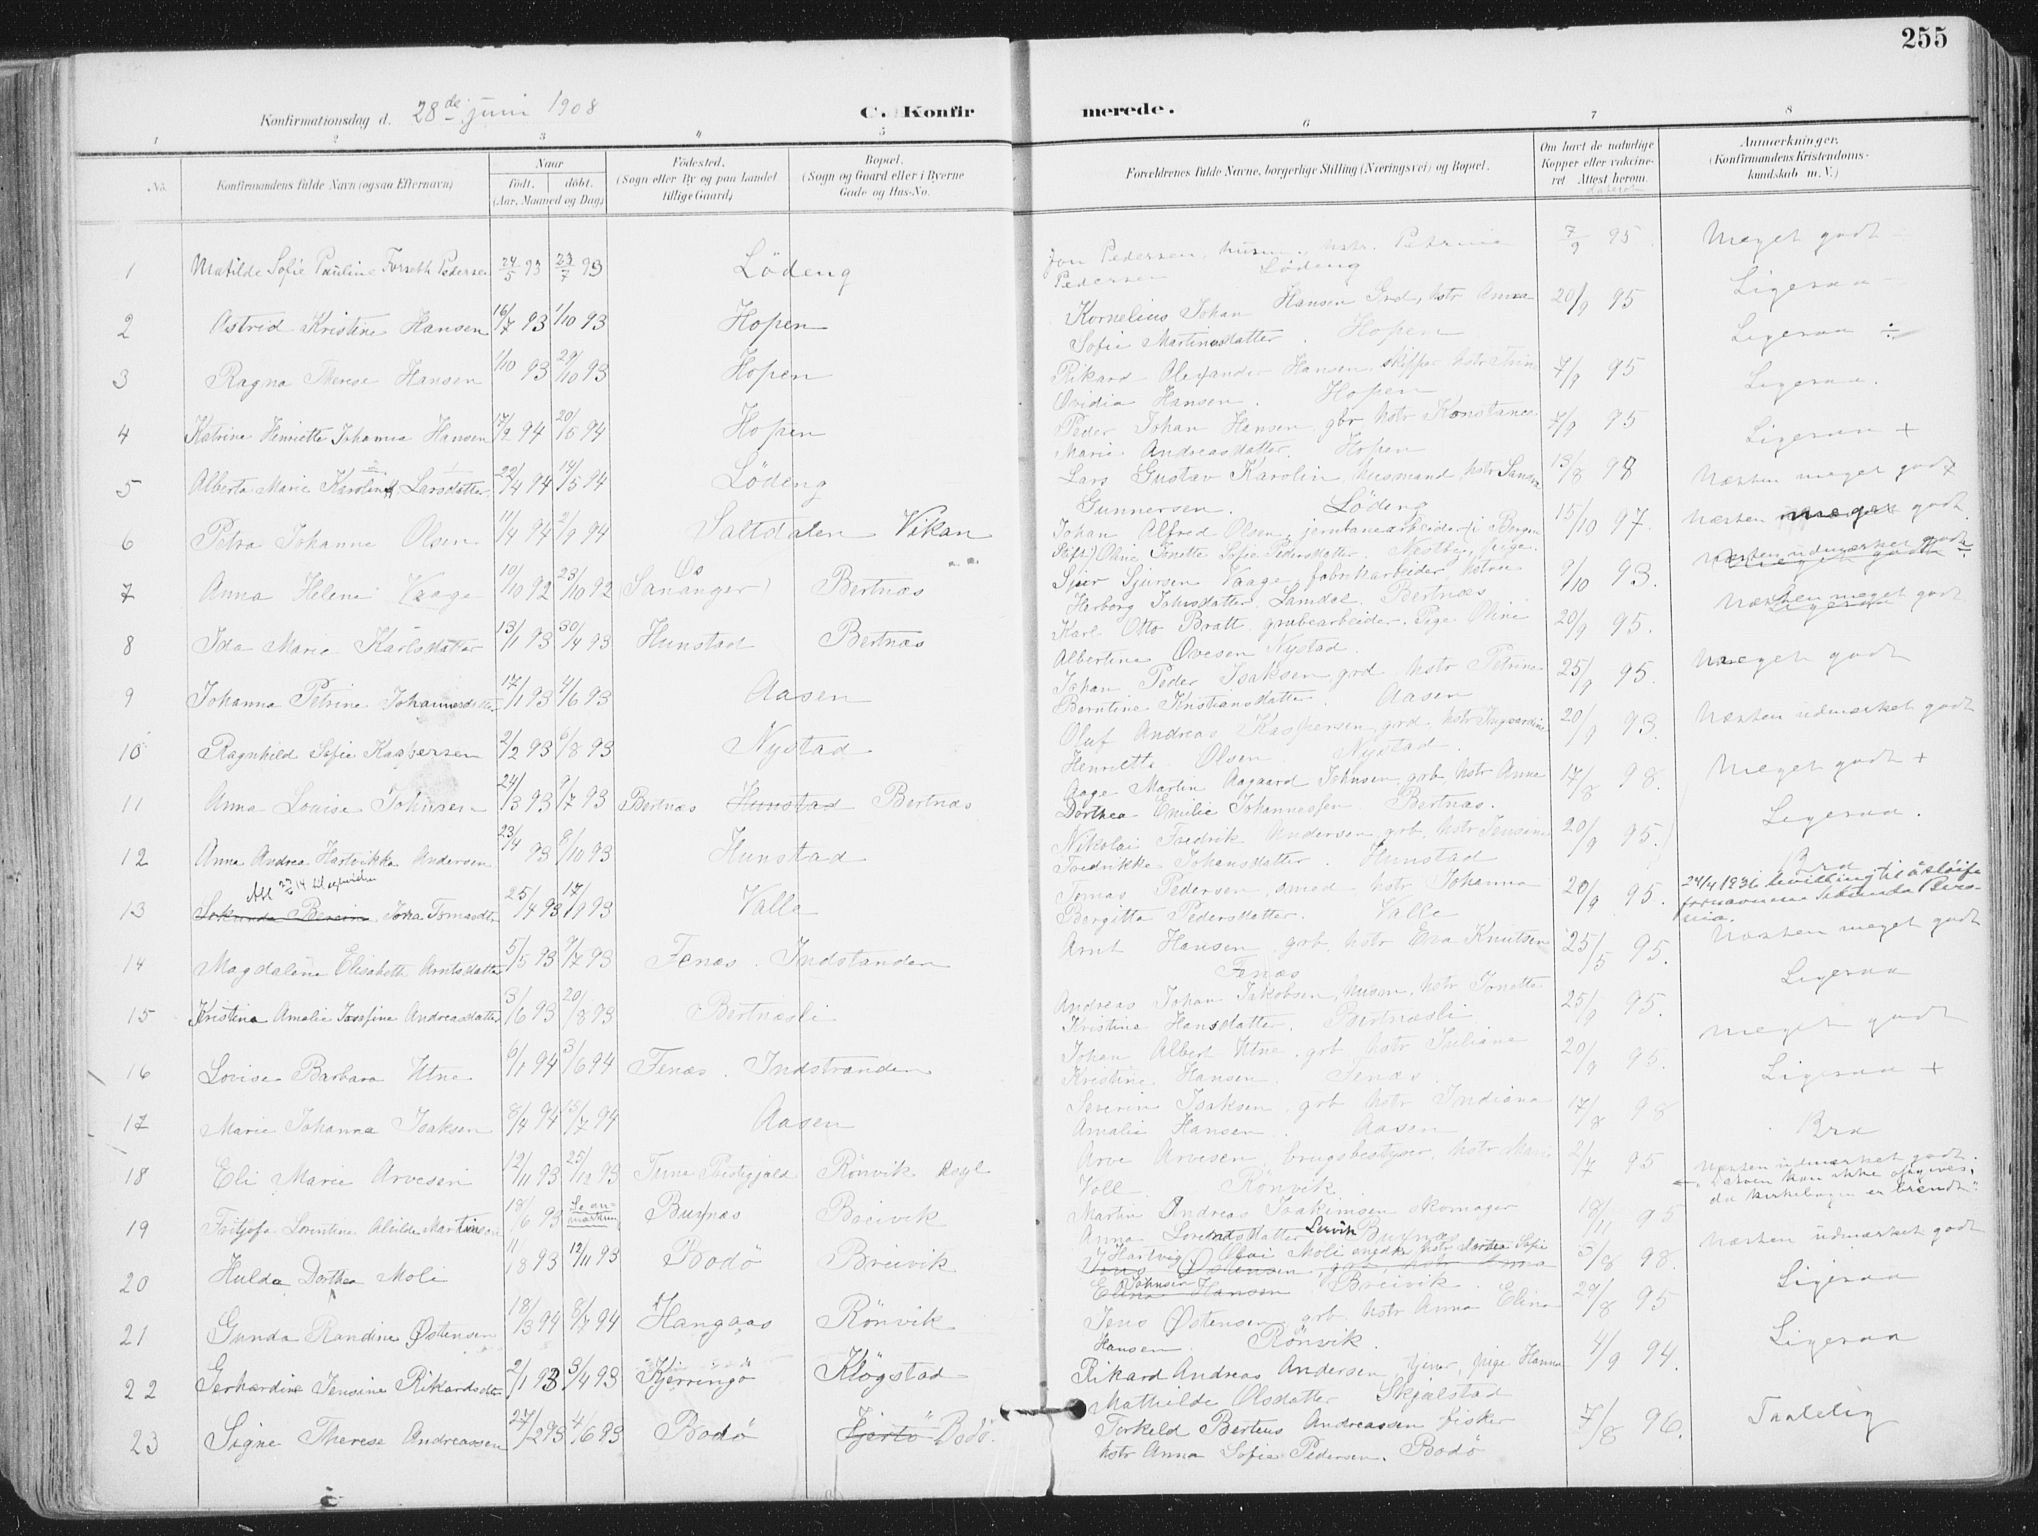 255
Konfirmationsdag d. 28de juni 1908
C. Konfir merede.
1 2 3 4 5 6 7 8
No.
Konfirmandens fulde Navn (ogsaa Efternavn)
Naar
født. døbt.
(Aar, Maaned og Dag)
Fødested.
(Sogn eller By og paa Landet
tillige Gaard)
Bopæl.
(Sogn og Gaard eller i Byerne
Gade og Hus-No.
Forældrenes fulde Navne, borgerlige Stilling (Næringsvei) og Bopæl.
Om havt de naturlige
Kopper eller vakcine-
ret Attest herom.
Anmærkninger.
(Konfirmandens Kristendoms-
kundskab m. V.)
1 Matilde Sofie Pauline Forseth Pedersen 24/5 93 23/7 93 Lödeng Jon Pedersen, husm., hstr. Petrine 7/9 95 Meget godt
Pedersen Lödeng
2 Astrid Kristine Hansen 16/7 93 1/10 93 Hopen Kornelius Johan Hansen Grd, hstr Anna 20/9 95 Ligesaa
Sofie Martinusdatter. Hopen
3 Ragna Therese Hansen 1/10 93 29/10 93 Hopen Rikard Alexander Hansen, skipper, hstr Trine 7/9 95 Ligesaa ÷
Øvidia Hansen. Hopen
4 Katrine Henriette Johanna Hansen 17/2 94 20/5 94 Hopen Peder Johan Hansen, gbr, hstr Konstance 7/9 95 Ligesaa.
Marie Andreasdatter. Hopen
5 Alberta Marie Karoline Larsdatter 22/4 94 14/5 94 Lödeng Lars Gustav Karolin, husmand, hstr Sandra 13/8 98 Ligesaa +
Gunnersen. Lödeng
6 Petra Johanne Olsen 11/4 94 2/9 94 Saltdalen Vikan Johan Alfred Olsen, jernbanearbeider (i Bergens 15/10 97. Næsten meget godt
Stift) Oline Sofie Pedersdatter. pige.
7 Anna Helene Vaage 10/10 92 23/10 92 Os (Samnanger) Bertnæs Sjur Sjursen Vaage, fabrikarbeider, hstru 9/10 93. Næsten meget godt
Herborg Johnsdatter Samdal. Bertnæs
8 Ida Marie Karlsdatter 13/1 93 30/4 93 Hunstad Bertnæs Karl Otto Bratt, grubearbeider. Pige Oline 20/9 95. Næsten udmærket godt
Albertine Ovesen Nystad.
9 Johanna Petrine Johannesdatter 17/1 93 4/6 93 Aasen Johan Peder Isaksen, grd, hstr Petrine 25/9 95. Næsten meget godt Ligesaa
Berntine Kristiansdatter. Aasen
10 Ragnhild Sofie Kaspersen 2/2 93 6/8 93 Nystad Oluf Andreas Kaspersen, grd. hstr Ingvardine 20/9 93. Meget godt
Henriette Olsen Nystad.
11 Anna Lovise Johnsen 24/3 93 9/7 93 Bertnæs Hunstad Bertnæs Aage Martin Aagaard Johnsen, grb, hstr Anna 17/8 98. Næsten udmærket godt
Dorthea Emilie Johannessen. Bertnæs.
12 Anna Andrea Hartvikka Andersen 23/4 93 8/10 93 Hunstad Nikolai Fredrik Andersen, grb, hstr Jensine 20/9 95. Meget godt +
Fredrikke Johansdatter. Hunstad
13 Joha Tomasdtr 25/4 93 17/9 93 Valle Tomas Pedersen, smed, hstr Johanna 20/9 95. Ligesaa.
Bergitta Pedersdatter. Valle
Bra
24/4 1936 bevilling til å sløife
fornavnene
14 Magdalene Elisabeth Arntsdatter 5/5 93 9/7 93 Fenæs. Indstranden Arnt Hansen, grb, hstr Eva Knutsen 25/5 95. Næsten meget godt
Fenæs
15 Kristine Amalie Josefine Andreasdatter 3/6 93 20/8 93 Bertnæsli Andreas Johan Jakobsen, husm, hstr Jonette 25/9 95. Ligesaa
Kristine Hansdatter. Bertnæsli
16 Lovise Barbara Utne 6/1 94 3/6 94 Fenæs. Indstranden Johan Albert Utne, grb, hstr Juliane 20/9 95. Meget godt
Kristine Hansen. Fenæs.
17 Marie Johanna Isaksen 8/4 94 15/7 94 Aasen Severin Isaksen, grb, hstr Indiana 17/8 98 Ligesaa +
Amalie Hansen. Aasen
18 Eli Marie Arvesen 12/11 93 25/12 93 Tune Prestegjæld Rönvik Asyl Arve Arvesen, brugsbestyrer, hstr Marie 2/7 95 Bra
Voll. Rönvik.
19 Fritjofa Lorentine Alvilde Martinsen 18/6 93 Se anmærkning Buxnæs Breivik Martin Andreas Joakimsen skomager 18/11 95 Næsten udmærket godt.
Daaben kan ikke opgives,
da kirkebogen er brændt.
Anna Lorentsdatter Buxnæs
20 Hulda Dorthea Moli 11/8 93 12/11 93 Bodö Breivik Hartvig Olai Moli snedker hstr Dortea Sofie 3/8 98. Næsten udmærket godt
Jens Østensen grb, hstr Anna
Elina Hansen Johnsen Breivik.
21 Gunda Randine Østensen 18/3 94 8/7 94 Hangaas Rönvik Jens Østensen, grb, hstr Anna Elina 29/8 95 Ligesaa
Hansen. Rönvik.
22 Gerhardine Jensine Rikardsdtr 2/1 93 3/4 93 Kjerringö Klögstad Rikard Andreas Andersen, tjener, pige Hanna 4/9 94. Ligesaa
Mathilde Olsdatter Skjelstad
23 Signe Therese Andreassen 27/2 93 4/6 93 Bodö Hjertö Bodö. Torkeld Berteus Andreassen fisker 7/8 96. Taalelig
hstr Anna Sofie Pedersen. Bodö